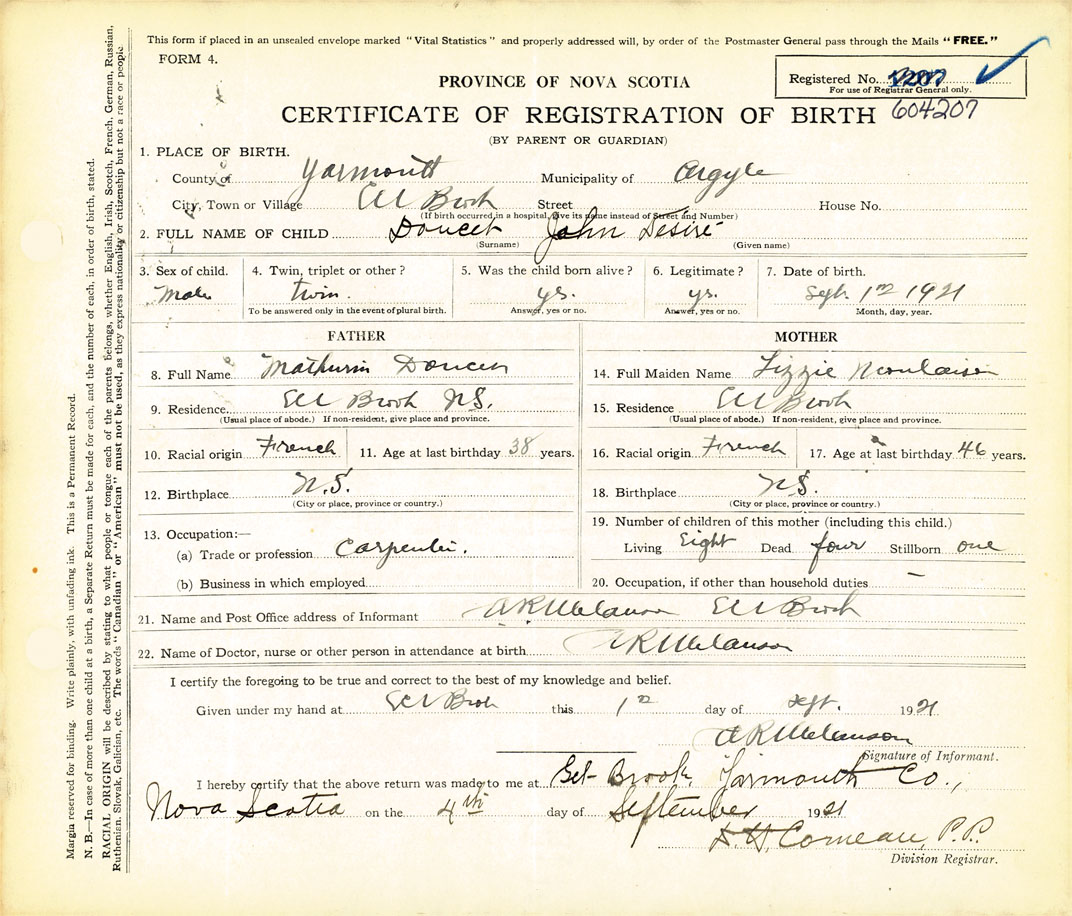 This form if placed in an unsealed envelope marked "Vital Statistics" and properly addressed will, by order of the Postmaster General pass through the Mails "FREE."
FORM 4.
PROVINCE OF NOVA SCOTIA
Registered No.
For use of Registrar General only.
CERTIFICATE OF REGISTRATION OF BIRTH 604207
(BY PARENT OR GUARDIAN)
1. PLACE OF BIRTH.
County of Yarmouth Municipality of Argyle
City, Town or Village Eel Brook Street House No.
(If birth occurred in a hospital, give its name instead of Street and Number)
2. FULL NAME OF CHILD Doucet John Desire
(Surname) (Given name)
3. Sex of child. 4. Twin, triplet or other? 5. Was the child born alive? 6. Legitimate? 7. Date of birth.
Male twin. yes. yes. Sept. 1st 1921
To be answered only in the event of plural birth. Answer, yes or no. Answer, yes or no. Month, day, year.
FATHER
8. Full Name Mathurin Doucet
9. Residence Eel Brook N.S.
(Usual place of abode.) If non-resident, give place and province.
10. Racial origin French 11. Age at last birthday 38 years.
12. Birthplace N.S.
(City or place, province or country.)
13. Occupation:—
(a) Trade or profession Carpenter.
(b) Business in which employed
MOTHER
14. Full Maiden Name Lizzie
15. Residence Eel Brook
(Usual place of abode.) If non-resident, give place and province.
16. Racial origin French 17. Age at last birthday 46 years.
18. Birthplace N.S.
(City or place, province or country.)
19. Number of children of this mother (including this child.)
Living Eight Dead four Stillborn one
20. Occupation, if other than household duties —
21. Name and Post Office address of Informant A R Melanson Eel Brook
22. Name of Doctor, nurse or other person in attendance at birth A R Melanson
I certify the foregoing to be true and correct to the best of my knowledge and belief.
Given under my hand at Eel Brook this 1st day of Sept. 1921
A R Melanson
Signature of Informant.
I hereby certify that the above return was made to me at Eel-Brook Yarmouth Co.,
Nova Scotia on the 4th day of September 1921
Comeau, P.P.
Division Registrar.
Margin reserved for binding. Write plainly, with unfading ink. This is a Permanent Record.
N. B.—In case of more than one child at a birth, a Separate Return must be made for each, and the number of each, in order of birth, stated.
RACIAL ORIGIN will be described by stating to what people or tongue each of the parents belongs, whether English, Irish, Scotch, French, German, Russian,
Ruthenian. Slovak, Galician, etc. The words "Canadian" or "American" must not be used, as they express nationality or citizenship but not a race or people